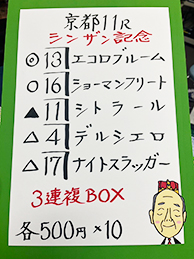 京都11R
シンザン記念
◎13 エコロブルーム
○16 ショーマンフリート
▲11 シトラール
△4 デルシエロ
△17 ナイトスラッガー
3連複BOX
各500円×10